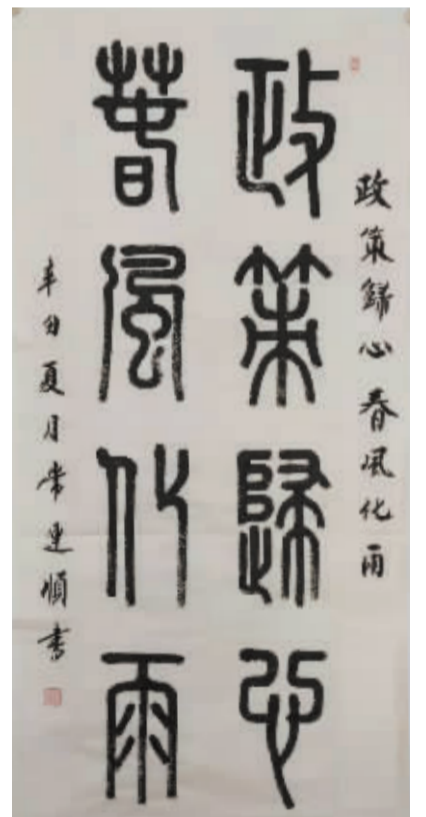 政策歸心春風化雨
政策歸心
春風化雨
辛丑夏月常連順書